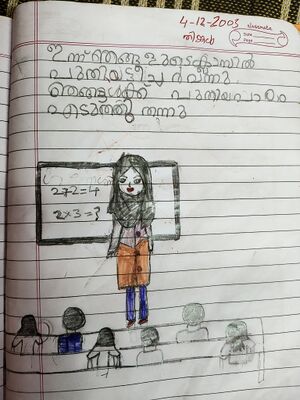 4-12-2003
തിങ്കൾ
classmate
Date
Page
ഇന്ന് ഞങ്ങളുടെ ക്ലാസിൽ
പുതിയ ടീച്ചർ വന്നു
ഞങ്ങൾക്ക് പുതിയ പാഠം
എടുത്തു തന്നു
2+2=4
2×3=